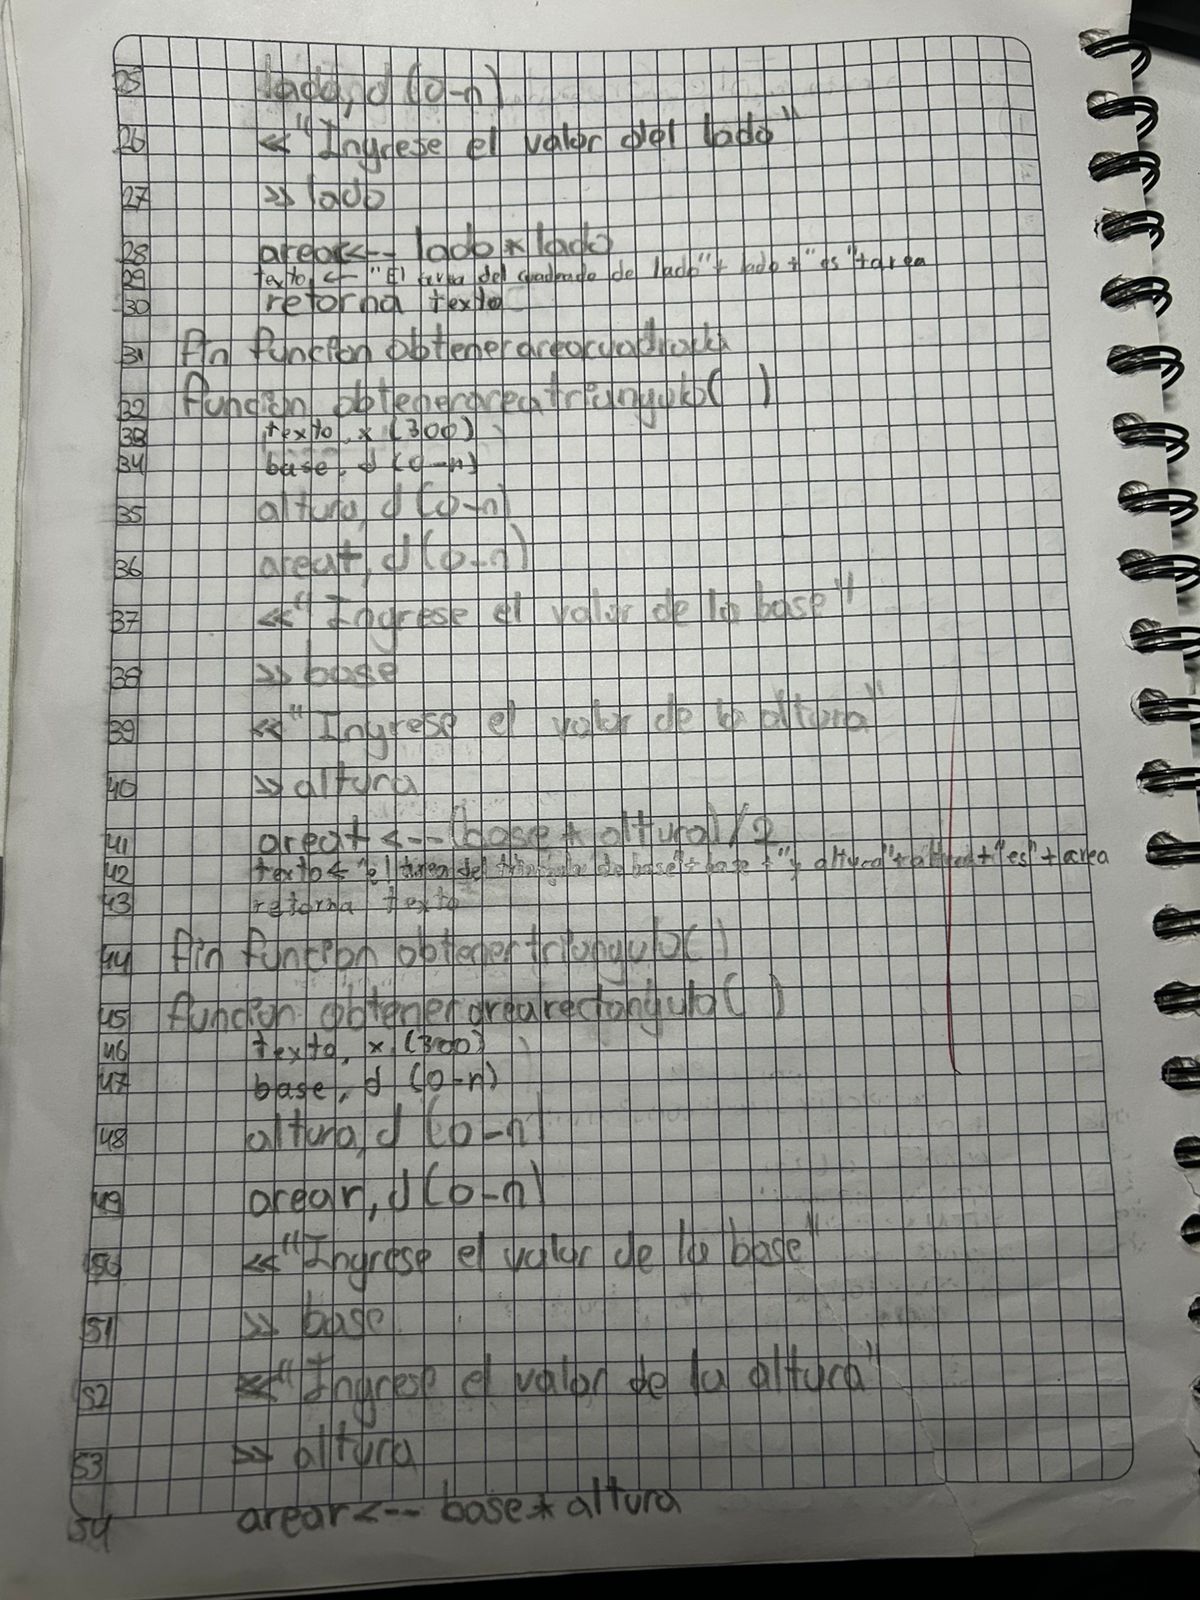 25 lado, d (0-n)
26 << "Ingrese el valor del lado"
27 >> lado
28 arear<-- lado * lado
29 texto <- "El area del cuadrado de lado" + lado + "es" + area
30 retorna texto
31 fin funcion obtenerareacuadrado
32 funcion obtenerareatriangulo( )
33 texto, x (300)
34 base, d (0-n)
35 altura, d (0-n)
36 areat, d (0-n)
37 << "Ingrese el valor de la base"
38 >> base
39 << "Ingrese el valor de la altura"
40 >> altura
41 areat <-- (base * altura) / 2
42 texto <- "el area del triangulo de base" + base + "y altura" + altura + "es" + area
43 retorna texto
44 fin funcion obtenertriangulo( )
45 funcion obtenerarearectangulo( )
46 texto, x (300)
47 base, d (0-n)
48 altura, d (0-n)
49 arear, d (0-n)
50 << "Ingrese el valor de la base"
51 >> base
52 << "Ingrese el valor de la altura"
53 >> altura
54 arear <-- base * altura